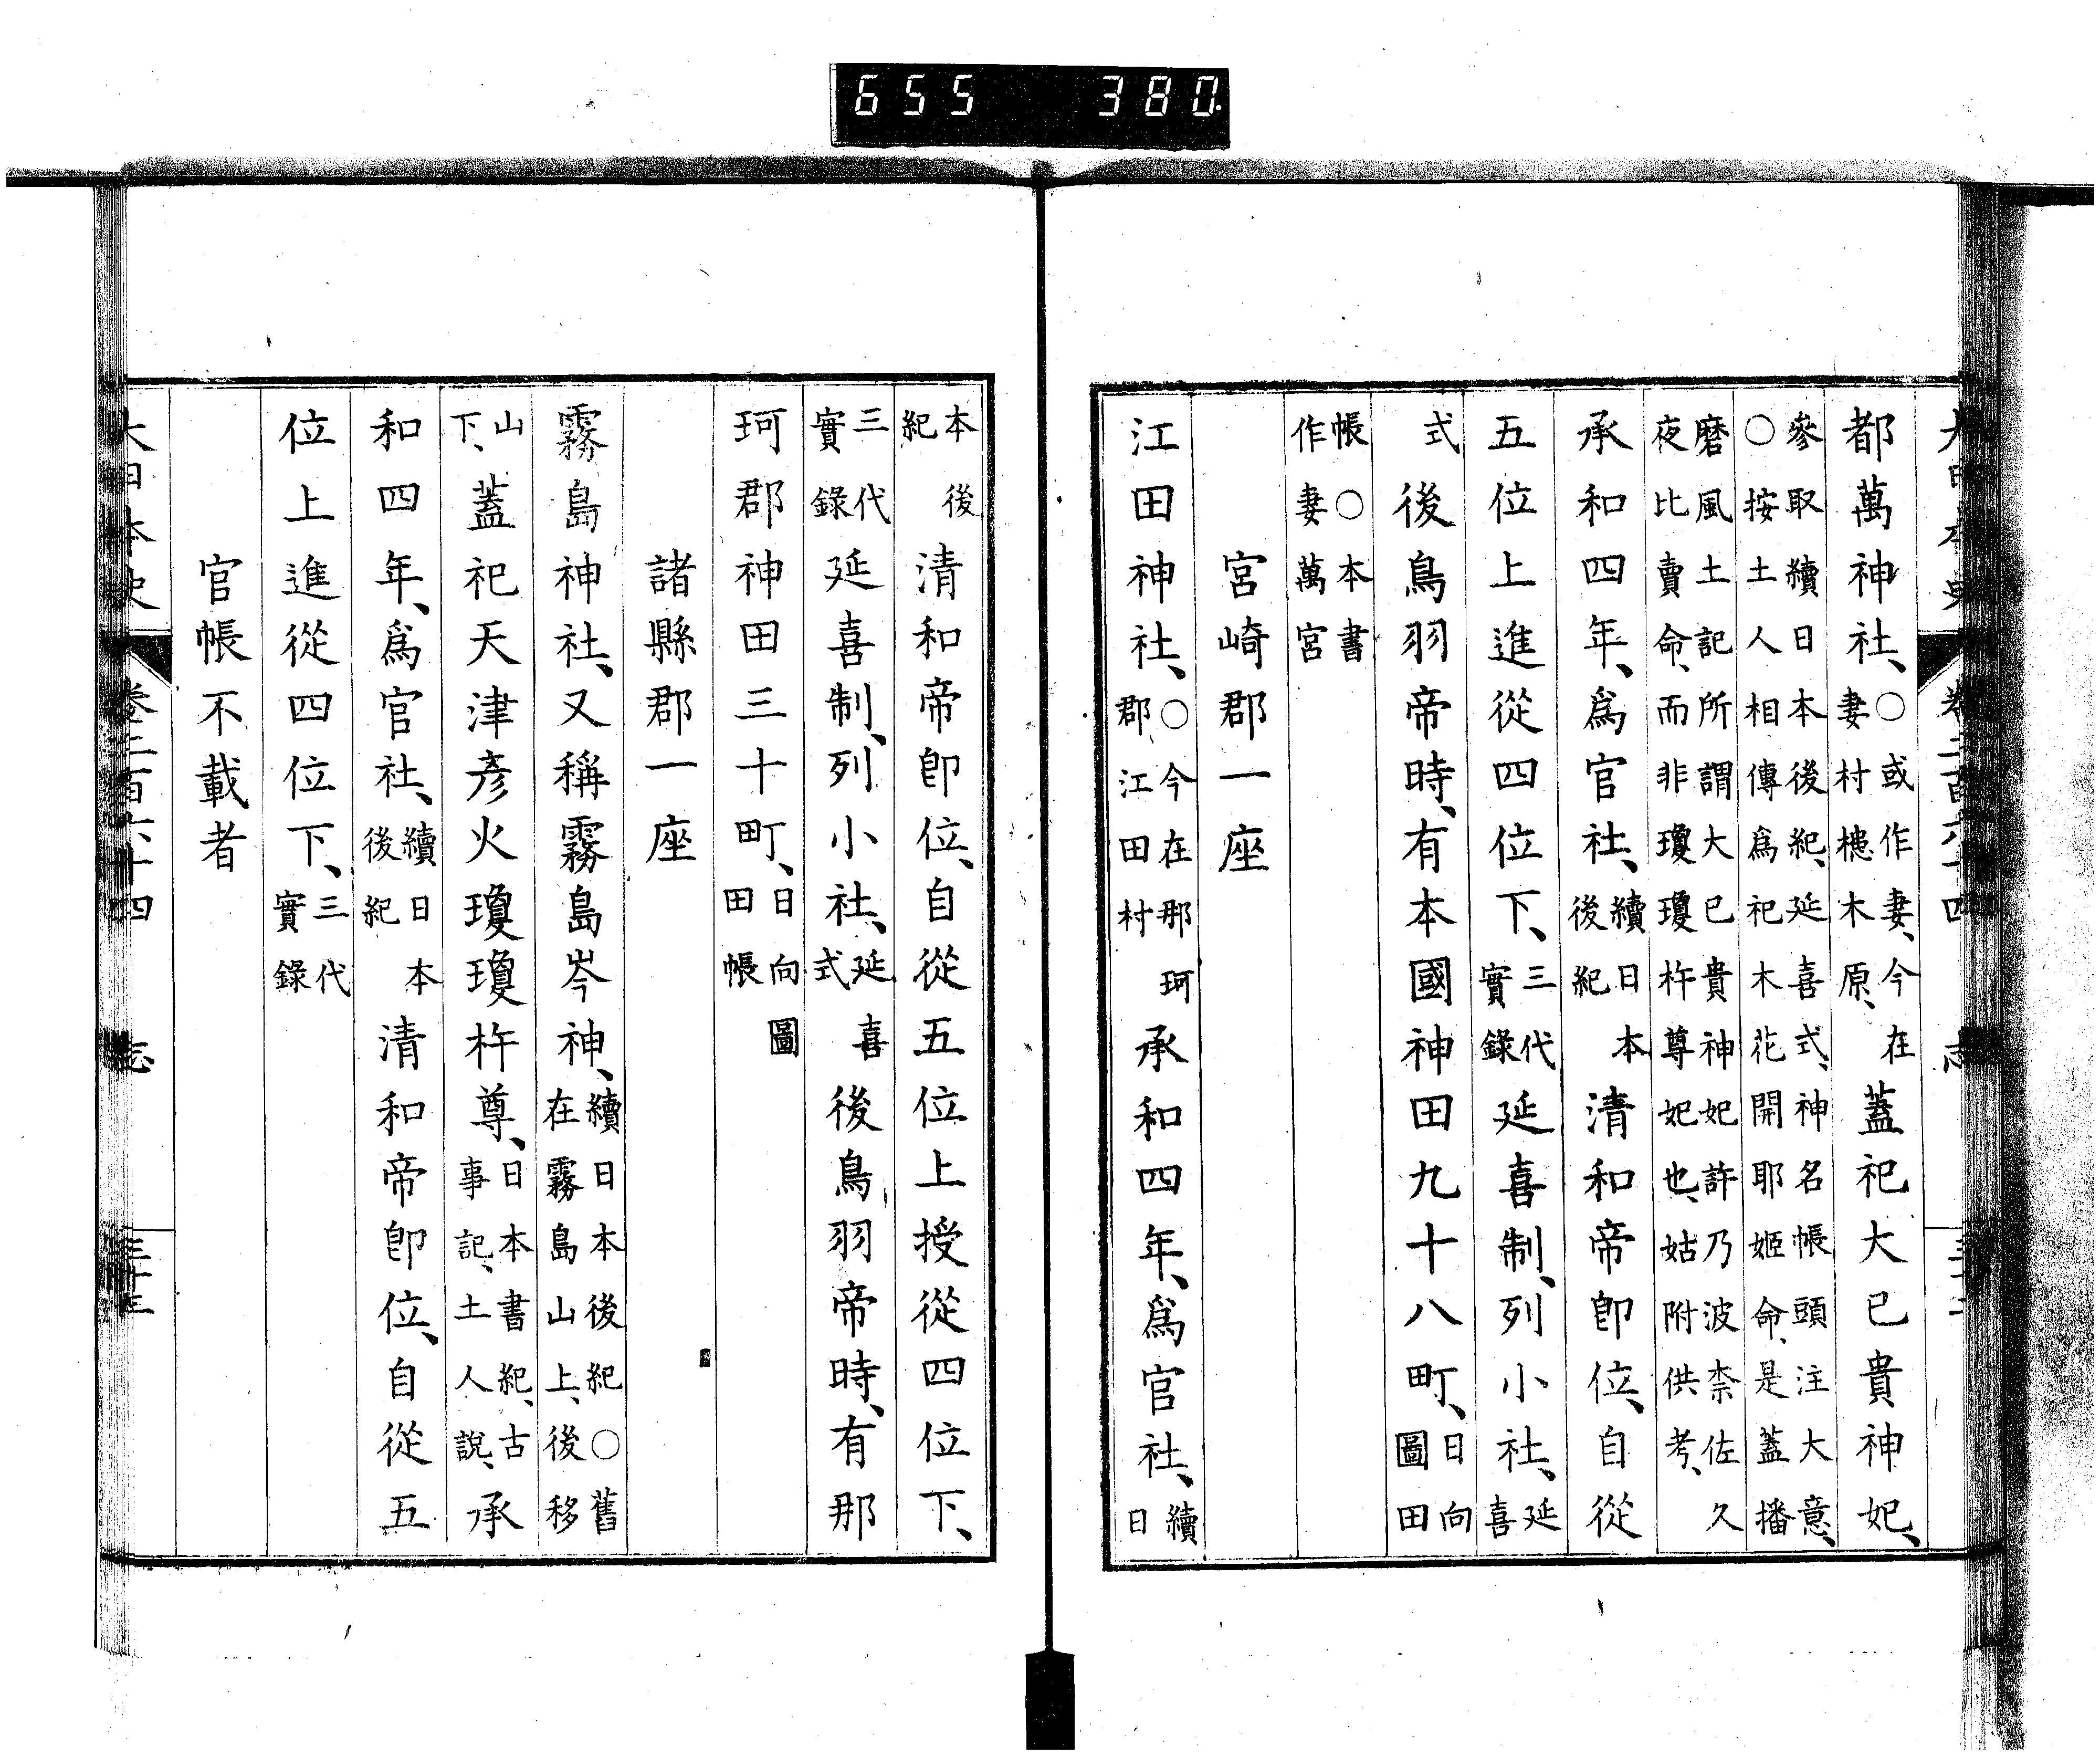 大日本史 卷二百六十四 志
都萬神社、○或作妻、今在妻村木原、蓋祀大已貴神妃、
參取續日本後紀、延喜式、神名帳頭注大意、
○按土人相傳爲祀木花開耶姬命、是蓋播
磨風土記所謂大已貴神妃許乃波柰佐久
夜比賣命、而非瓊瓊杵尊妃也、姑附供考、
承和四年、爲官社、續日本後紀清和帝卽位、自從
五位上進從四位下、三代實錄延喜制、列小社、延喜
式後鳥羽帝時、有本國神田九十八町、日向圖田
帳○本書作妻萬宮
宮崎郡一座
江田神社、○今在那珂郡江田村承和四年、爲官社、續日
本後紀清和帝卽位、自從五位上授從四位下、
三代實錄延喜制、列小社、延喜式後鳥羽帝時、有那
珂郡神田三十町、日向圖田帳
諸縣郡一座
霧島神社、又稱霧島岑神、續日本後紀○舊在霧島山上、後移
山下、蓋祀天津彥火瓊瓊杵尊、日本書紀、古事記、土人說、承
和四年、爲官社、續日本後紀清和帝卽位、自從五
位上進從四位下、三代實錄
官帳不載者
大日本史 卷二百六十四 志 三十三
655 380